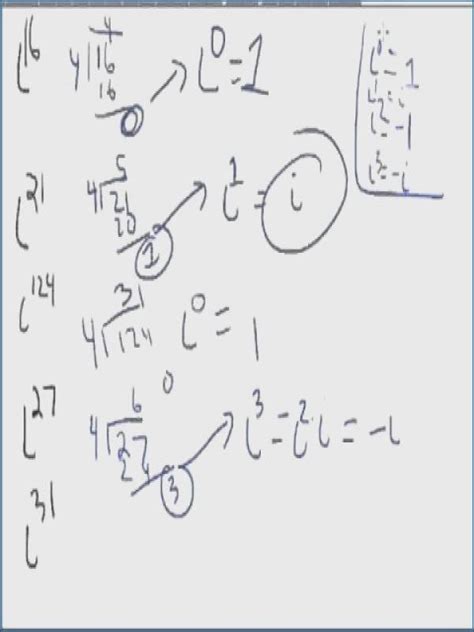 i^0 = 1
i^1 = i
i^2 = -1
i^3 = -i
i^16
4
4)16
16
0
i^0 = 1
i^21
5
4)21
20
1
i^1 = i
i^124
31
4)124
i^0 = 1
i^27
6
0
4)27
3
i^3 = i^2 i = -i
i^31